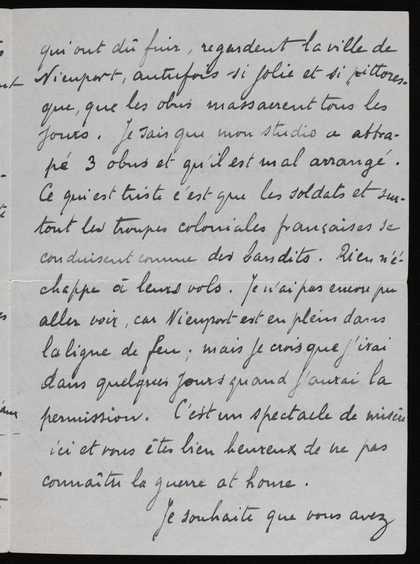 qui ont dû fuir, regardent la ville de
Nieuport, autrefois si jolie et si pittores-
que, que les obus massacrent tous les
jours. Je sais que mon studio a attra-
pé 3 obus et qu'il est mal arrangé.
Ce qui est triste c'est que les soldats et sur-
tout les troupes coloniales françaises se
conduisent comme des bandits. Rien n'é-
chappe à leurs vols. Je n'ai pas encore pu
aller voir, car Nieuport est en plein dans
la ligne de feu, mais je crois que j'irai
dans quelques jours quand j'aurai la
permission. C'est un spectacle de misère
ici et vous êtes bien heureux de ne pas
connaître la guerre at home.
Je souhaite que vous avez